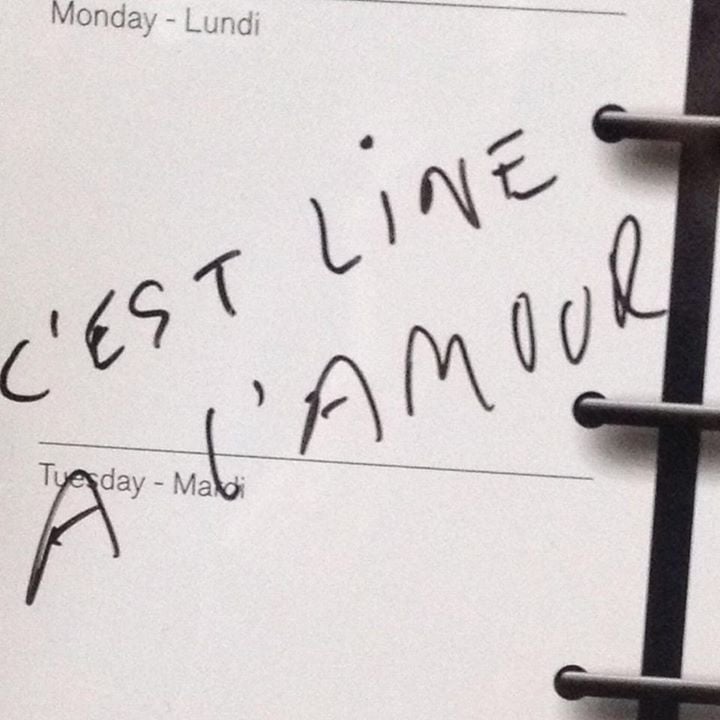 Monday - Lundi
C'EST LiNE
A L'AMOUR
Tuesday - Mardi